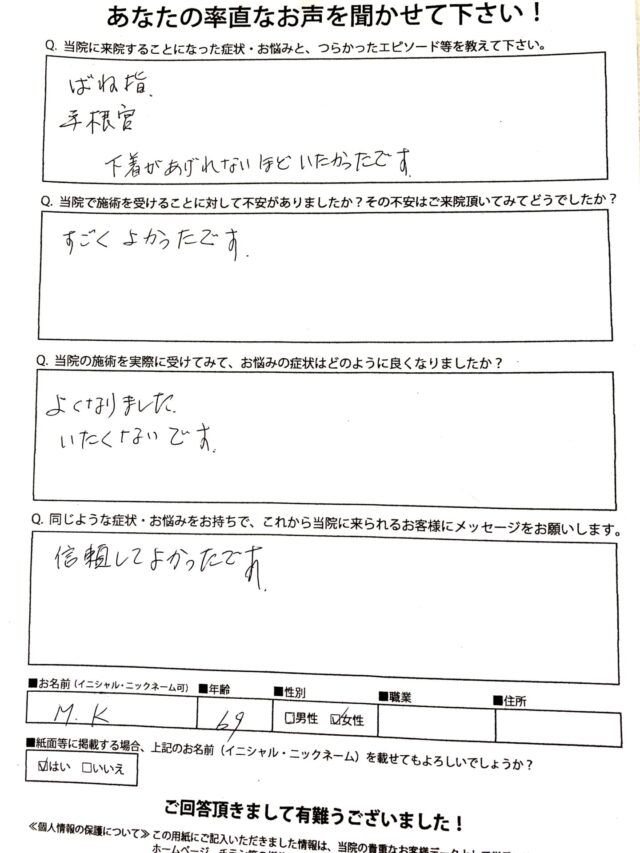 あなたの率直なお声を聞かせて下さい！
Q. 当院に来院することになった症状・お悩みと、つらかったエピソード等を教えて下さい。
ばね指.
手根官
下着があげれないほどいたかったです.
Q. 当院で施術を受けることに対して不安がありましたか？その不安はご来院頂いてみてどうでしたか？
すごくよかったです.
Q. 当院の施術を実際に受けてみて、お悩みの症状はどのように良くなりましたか？
よくなりました.
いたくないです.
Q. 同じような症状・お悩みをお持ちで、これから当院に来られるお客様にメッセージをお願いします。
信頼してよかったです.
■お名前（イニシャル・ニックネーム可） ■年齢 ■性別 ■職業 ■住所
M. K 69 □男性 ☑女性
■紙面等に掲載する場合、上記のお名前（イニシャル・ニックネーム）を載せてもよろしいでしょうか？
☑はい □いいえ
ご回答頂きまして有難うございました！
≪個人情報の保護について≫ この用紙にご記入いただきました情報は、当院の貴重なお客様データとして
ホームページ、チラシ等の